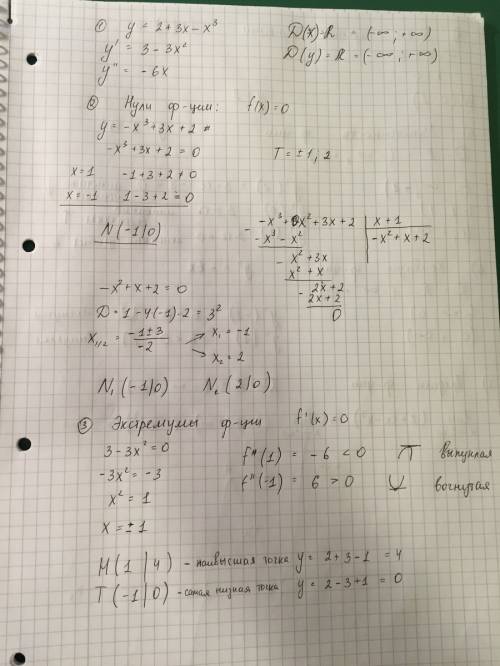 ① y = 2 + 3x − x³ D(x) = ℝ = (−∞ ; +∞)
y' = 3 − 3x² D(y) = ℝ = (−∞ ; +∞)
y'' = −6x
② Нули ф-ции: f(x) = 0
y = −x³ + 3x + 2
−x³ + 3x + 2 = 0 T = ±1 ; 2
x = 1 −1 + 3 + 2 ≠ 0
x = −1 1 − 3 + 2 = 0
N (−1|0)
−x³ + 0x² + 3x + 2 | x + 1
−x³ − x² | −x² + x + 2
x² + 3x
x² + x
2x + 2
2x + 2
0
−x² + x + 2 = 0
D = 1 − 4·(−1)·2 = 3²
x₁/₂ = (−1 ± 3)/(−2) x₁ = −1
x₂ = 2
N₁ (−1|0) N₂ (2|0)
③ Экстремумы ф-ции f'(x) = 0
3 − 3x² = 0
−3x² = −3
x² = 1
x = ±1
f''(1) = −6 < 0 выпуклая
f''(−1) = 6 > 0 вогнутая
H (1|4) − наивысшая точка y = 2 + 3 − 1 = 4
T (−1|0) − самая низкая точка y = 2 − 3 + 1 = 0